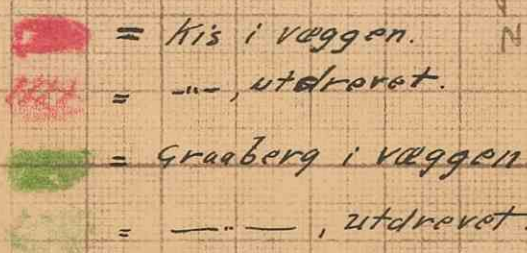 = Kis i væggen.
= —"—, utdrevet.
= Graaberg i væggen
= —"—, utdrevet.